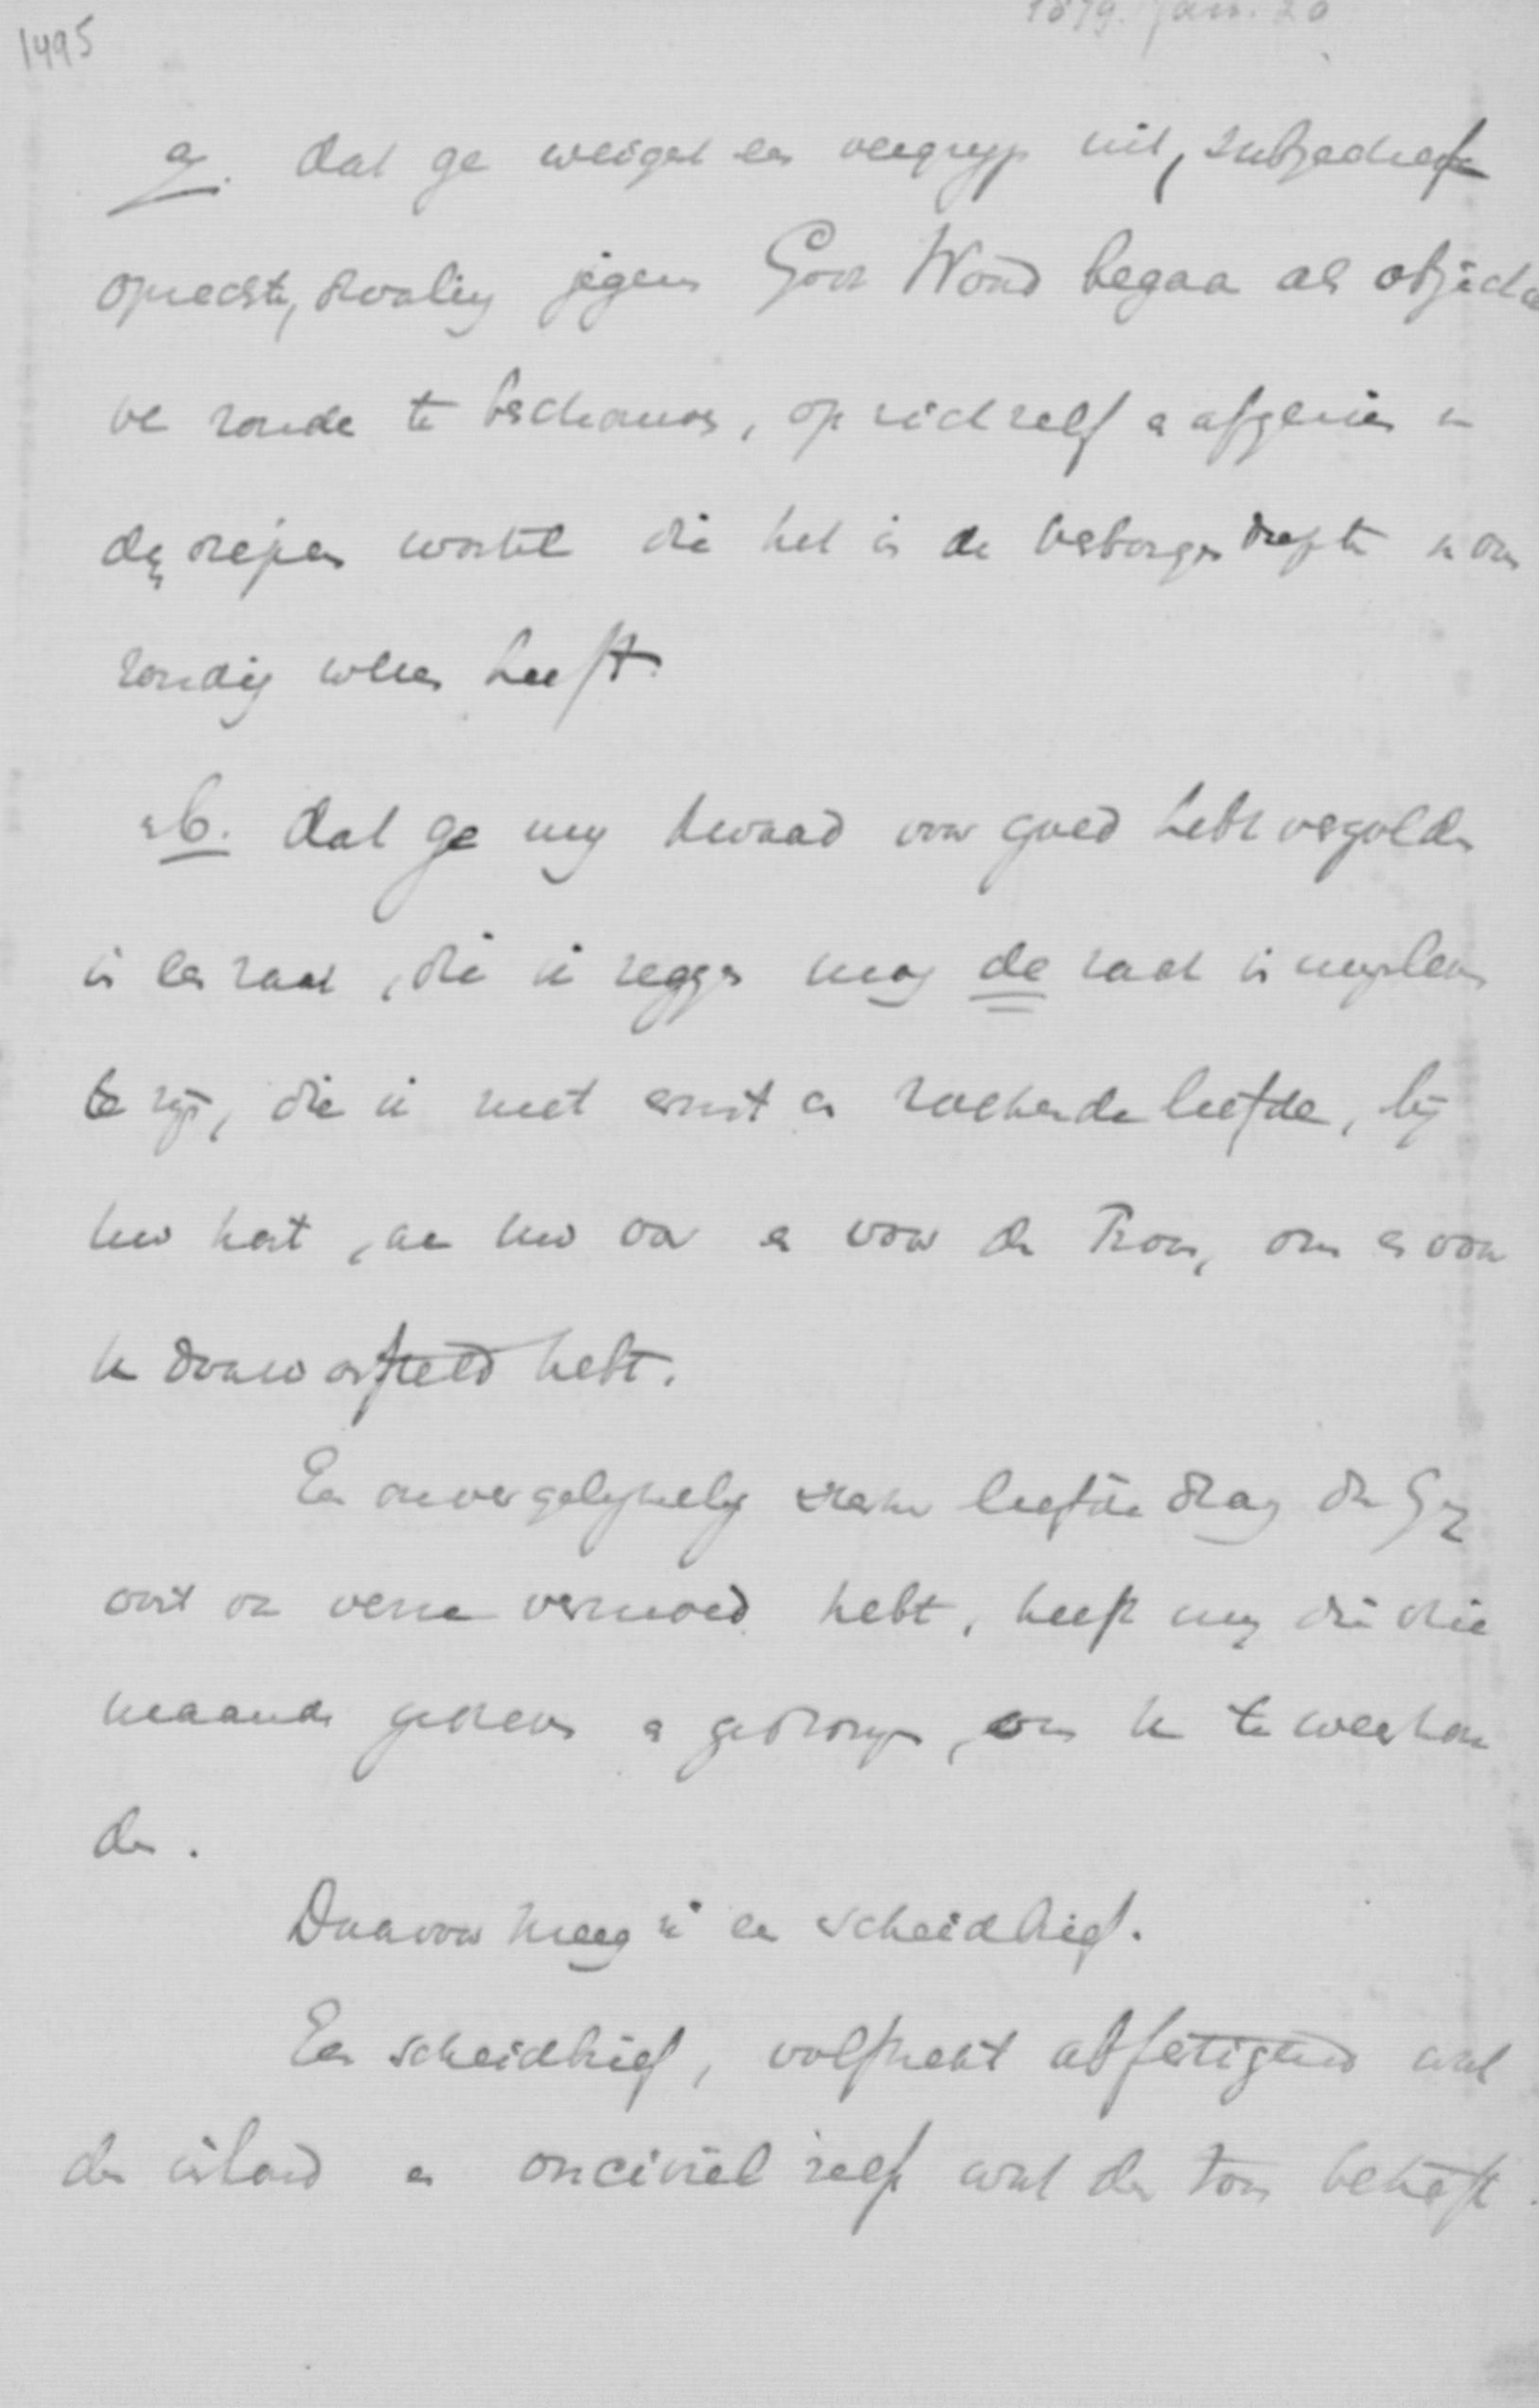 1495
1879. Jan. 20
a. dat ge weigert een vergrijp uit, subjectief
oprechte, dwaling jegens Gods Woord begaan als objectie
ve zonde te beschouwen, op zichzelf en afgezien van
den diepen wortel die het in de verborgen diepte van ons
zondig wezen heeft.
en b. dat ge mij kwaad voor goed hebt vergolden
in een zaak, die ik zeggen mag de zaak mijns levens
te zijn, die ik met ernst en zoekende liefde, bij
uw hart, aan uw oor en voor den Troon, om en voor
u hebt.
Een onvergelijkelijk sterker liefde dan den Gij
ooit van verre vermoed hebt, heeft mij die drie
maanden gedreven en gedrongen, om u te weerhou
den.
Daarvoor kreeg ik een scheidbrief.
Een scheidbrief, volstrekt wat
den inhoud en onciviel zelfs wat den toon betreft.